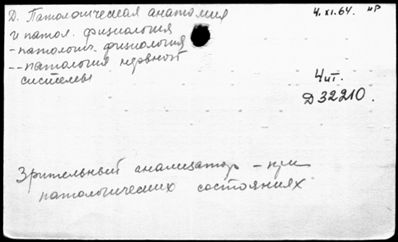 Д. Патологическая анатомия
и патол. физиология
- патологич. физиология
-- патология нервной
системы
4.XI.64. нр
4 шт.
Д 32210.
Зрительный анализатор - при
патологических состояниях